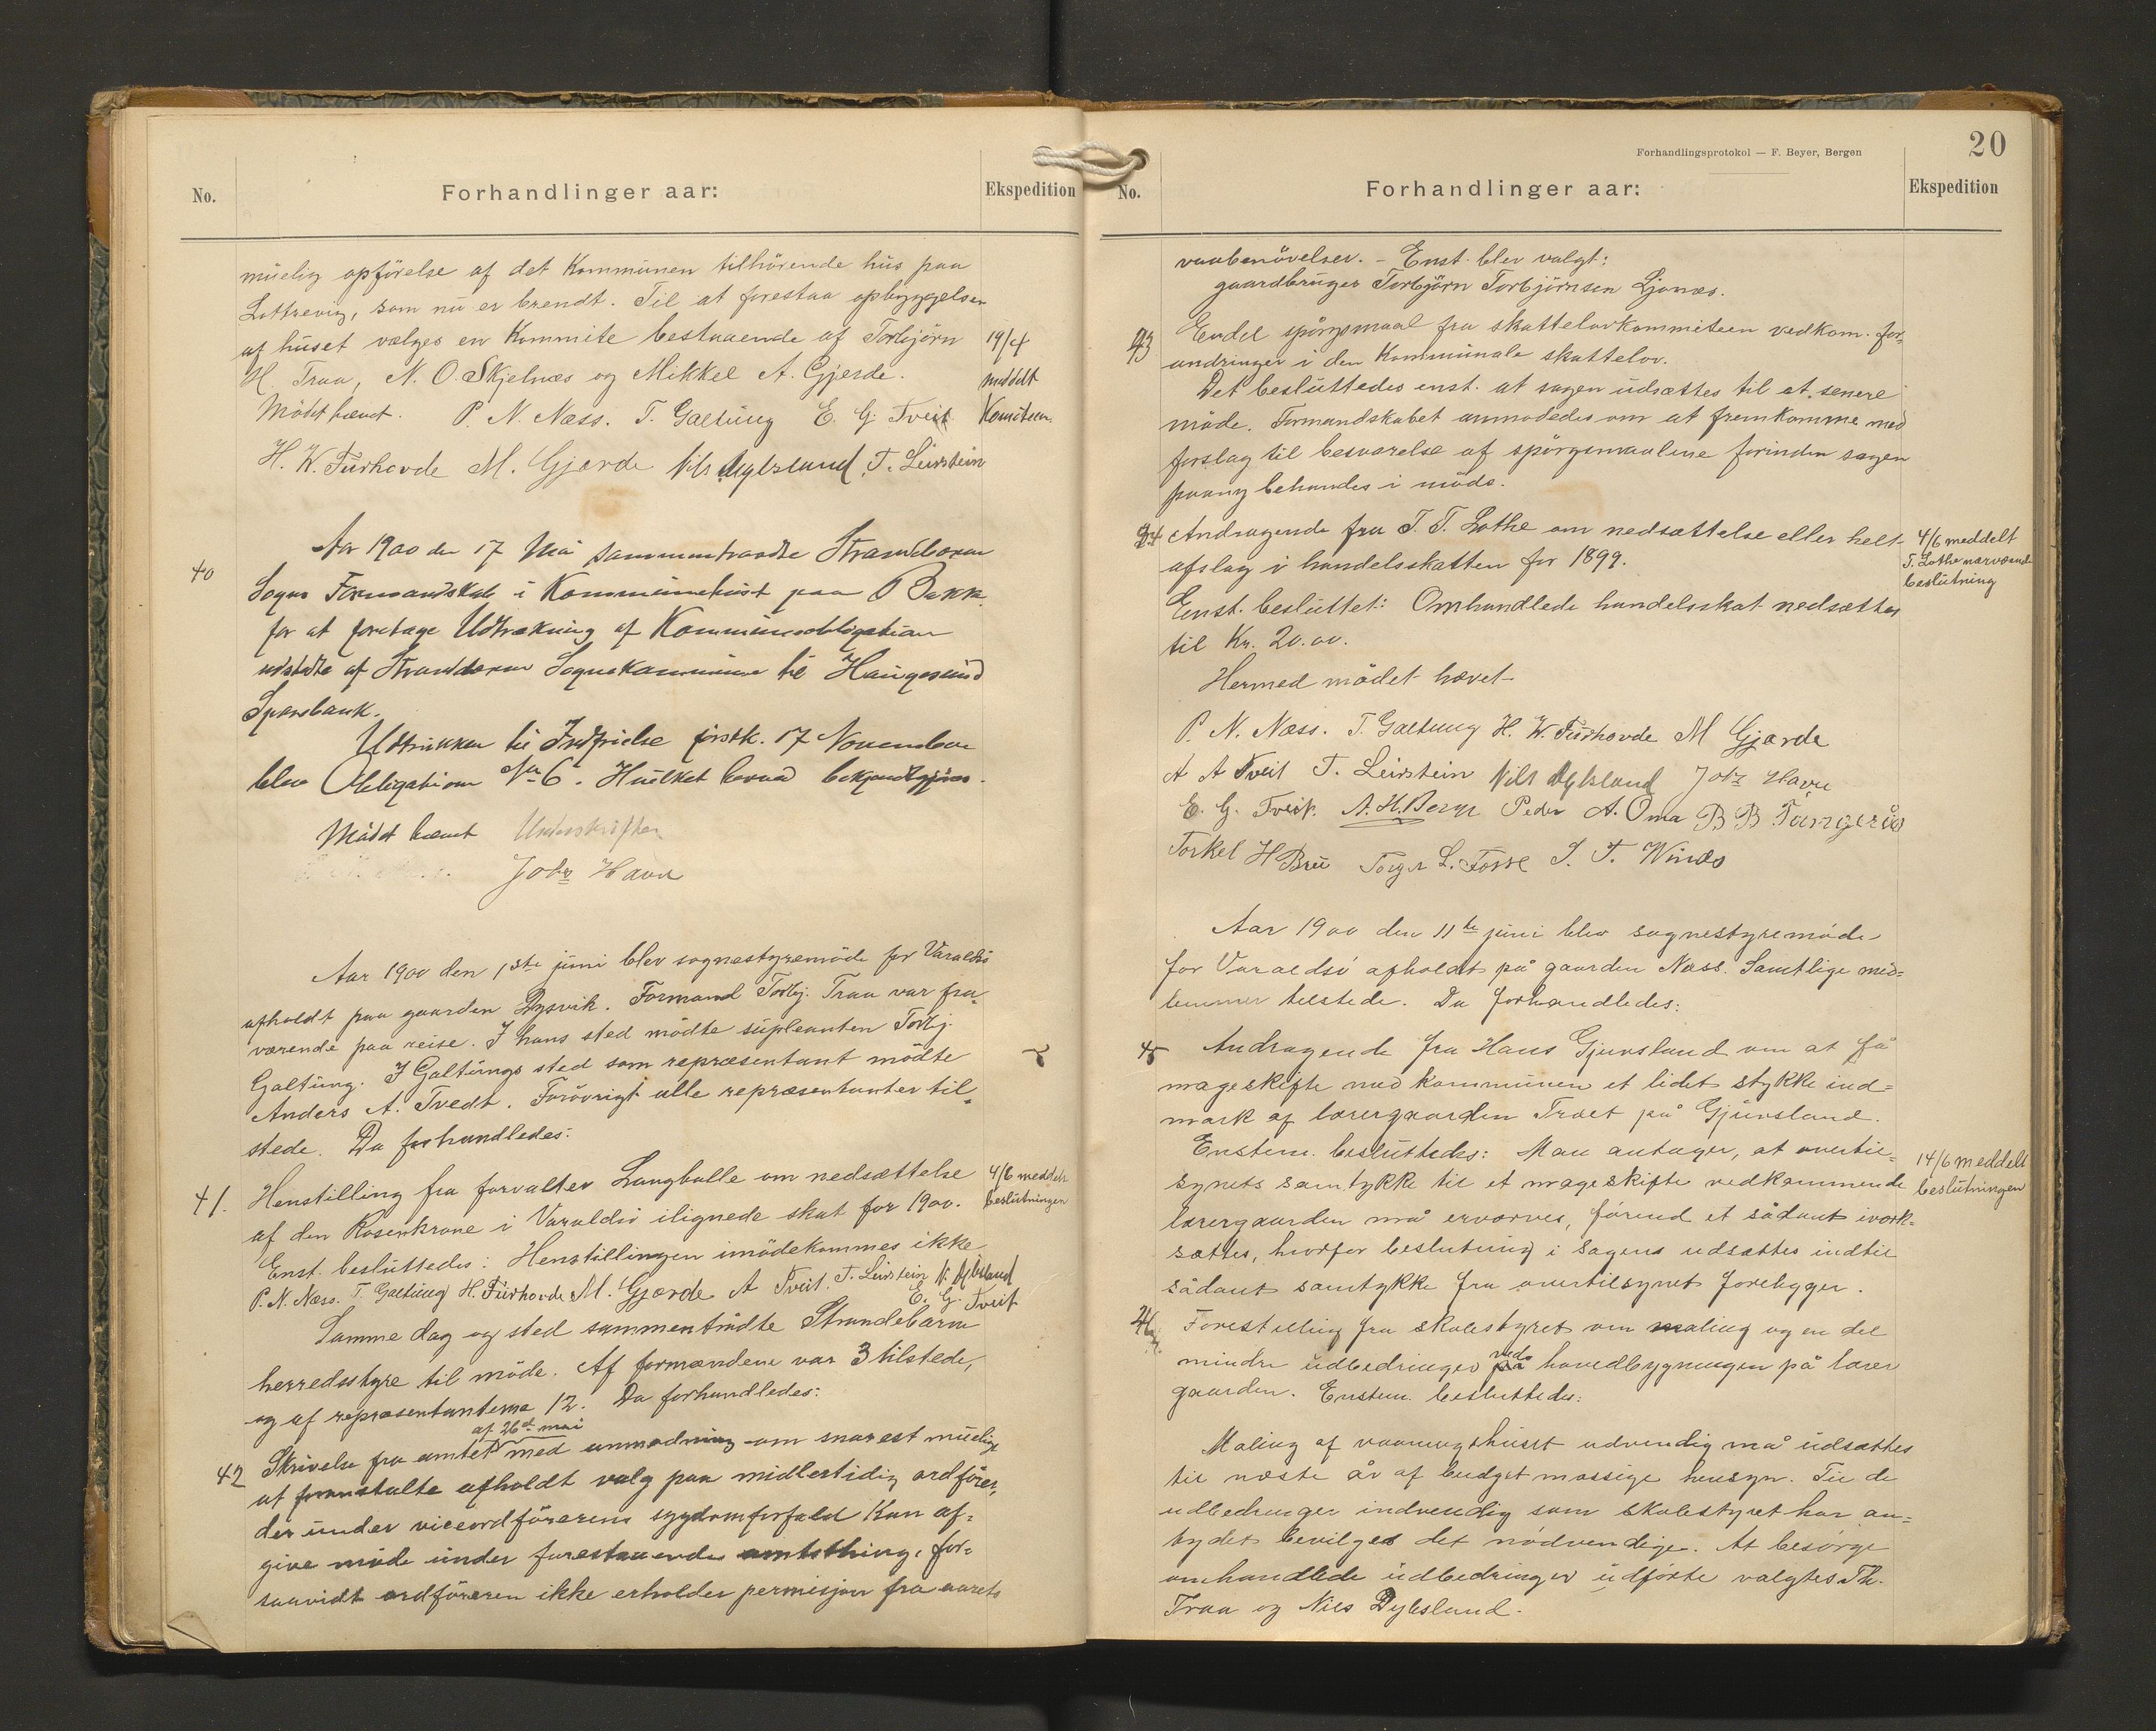 No.
Forhandlinger aar:
Ekspedition
muelig opförelse af det Kommunen tilhörende hus paa
Lottrevig, som nu er brendt. Til at forestaa opbyggelsen
af huset vælges en Kommite bestaaende af Torbjörn
H. Traa, N. O. Skjelnæs og Mikkel A. Gjerde.
19/4
meddelt
Komiteen.
Mödet hævet. P. N. Næss. T. Galtung E. G. Tveit
H. W. Furhovde M. Gjærde Nils Dybsland T. Leirstein
40
Aar 1900 den 17 Mai sammentraadte Strandebarm
Sogns Formandskab i Kommunehuset paa Bakke
for at foretage Udtrækning af Kommuneobligation
udstedte af Strandebarm Sognekommune til Haugesund
Sparebank.
Udtrukken til Indfrielse förstk. 17 November
blev Obligation No 6. Hvilket herved bekjendtgjöres.
Mödet hævet Underskrifter
Johs Havn
Aar 1900 den 1ste juni blev sognestyremöde for Varaldsö
afholdt paa gaarden Dysvik. Formand Torbj. Traa var fra-
værende paa reise. I hans sted mödte supleanten Torbj.
Galtung. I Galtungs sted som repræsentant mödte
Anders A. Tvedt. Forövrigt alle repræsentanter til-
stede. Da forhandledes:
41.
Henstilling fra forvalter Langballe om nedsættelse
af den Rosenkrone i Varaldsö ilignede skat for 1900.
4/6 meddelt
beslutningen
Enst. besluttedes: Henstillingen imödekommes ikke
P. N. Næss. T. Galtung H. Furhovde M. Gjærde A Tveit. T. Leirstein N. Dybsland
E. G. Tveit
Samme dag og sted sammentraadte Strandebarm
herredsstyre til möde. Af formændene var 3 tilstede,
og af repræsentanterne 12. Da forhandledes:
af 26de mai
42
Skrivelse fra amtet med anmodning om snarest muelig
at foranstalte afholdt valg paa midlertidig ordförer,
der under viceordförerens sygdomsforfald kan af-
give möde under forestaaende amtsthing, for-
saavidt ordföreren ikke erholder permisjon fra aarets
20
Forhandlingsprotokol — F. Beyer, Bergen
No.
Forhandlinger aar:
Ekspedition
vaabenövelser. - Enst. blev valgt:
gaardbruger Torbjörn Torbjörnsen Ljones.
43
Endel spörgsmaal fra skattelovkommiteen vedkom. for-
andringer i den Kommunale skattelov.
Det besluttedes enst. at sagen udsættes til et senere
möde. Formandskabet anmodedes om at fremkomme med
forslag til besvarelse af spörgsmaalene forinden sagen
paany behandles i möde.
44
Andragende fra T. T. Lothe om nedsættelse eller helt
afslag i handelsskatten for 1899.
4/6 meddelt
T. Lothe nærværende
beslutning
Enst. besluttet: Omhandlede handelsskat nedsættes
til Kr. 20.00.
Hermed mödet hævet
P. N. Næss. T. Galtung H. W. Furhovde M Gjærde
A A Tveit T. Leirstein Nils Dybsland Johs Havn
E. G. Tveit. A. H. Berge Peder A. Oma B B Tangerås
Torkel H Bru Torger L. Fosse S. T. Winæs
Aar 1900 den 11te juni blev sognestyremöde
for Varaldsö afholdt på gaarden Næss. Samtlige med-
lemmer tilstede. Da forhandledes:
45
Andragende fra Hans Gjuvsland om at få
mageskifte med kommunen et lidet stykke ind-
mark af lærergaarden Træet på Gjuvsland.
Enstem. besluttedes: Man antager, at overtil-
synets samtykke til et mageskifte vedkommende
14/6 meddelt
beslutningen
lærergaarden må erværves, förend et sådant iværk-
sættes, hvorfor beslutning i sagens udsættes indtil
sådant samtykke fra overtilsynet foreligger.
46
Forestilling fra skolestyret om maling og en del
mindre udbedringer ved hovedbygningen på lærer
gaarden. Enstem. besluttedes:
Maling af vaaningshuset udvendig må udsættes
til næste år af budgetmæssige hensyn. Til de
udbedringer indvendig som skolestyret har an-
tydet bevilges det nödvendige. At besörge
omhandlede udbedringer udförte valgtes Th.
Traa og Nils Dybsland.